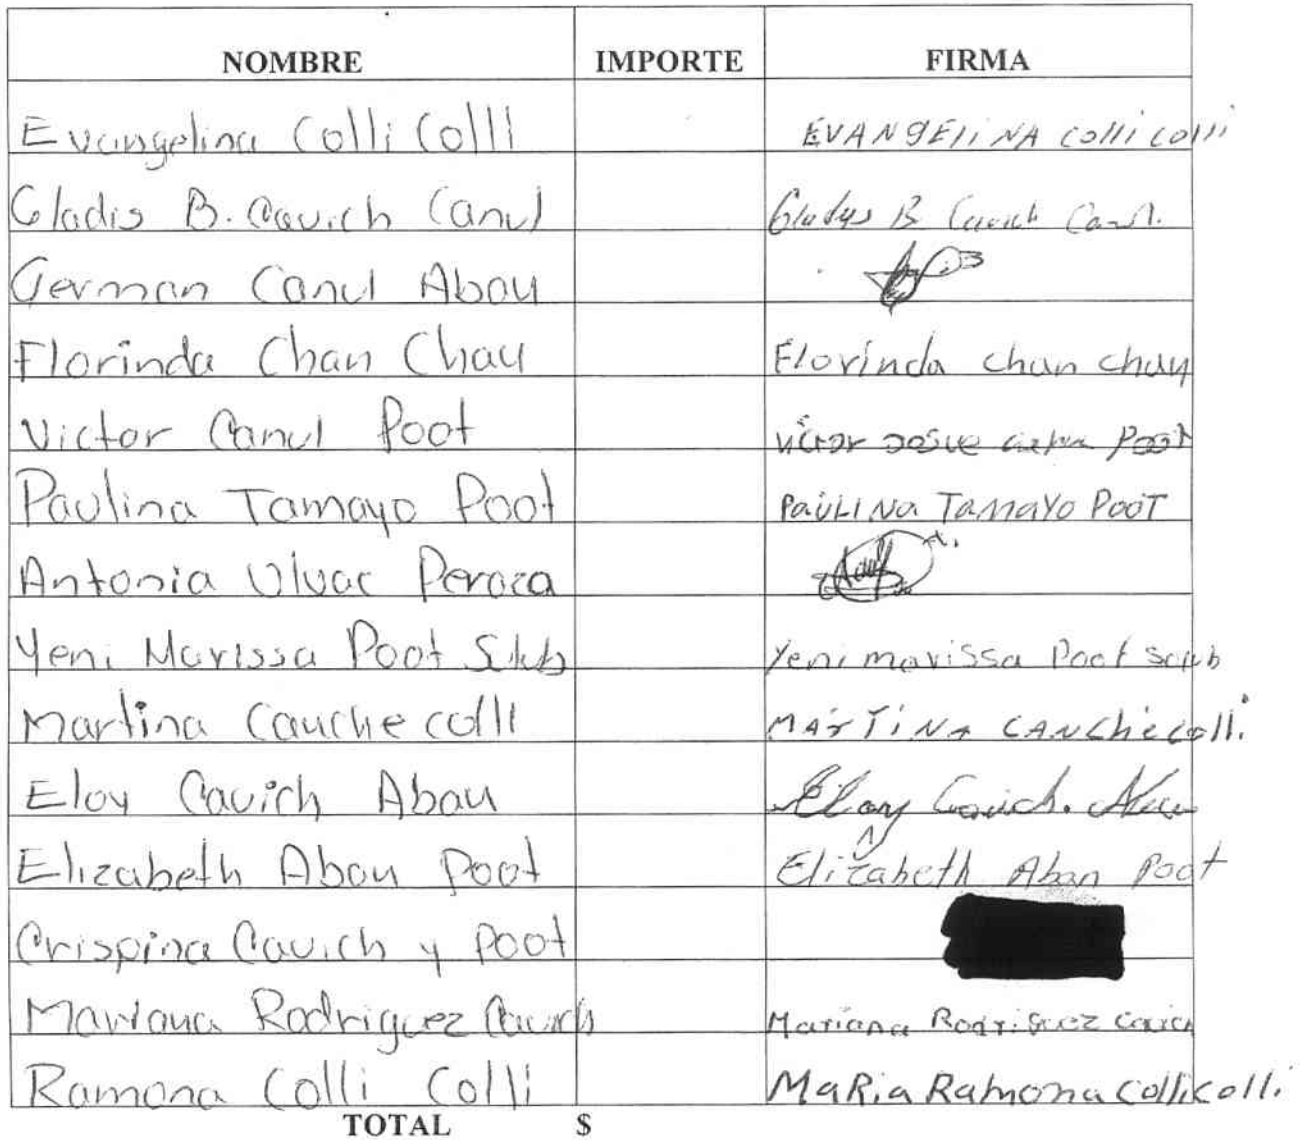 NOMBRE IMPORTE FIRMA
Evangelina Colli Colli EVANGELINA colli colli
Gladis B. Cauich Canul Gladys B Cauich Canul.
German Canul Aban
Florinda Chan Chay Florinda chan chay
Victor Canul Poot victor josue Poot
Paulina Tamayo Poot PAULINA TAMAYO POOT
Antonia Uluac Peraza
Yeni Marissa Poot Yeni marissa Poot
Martina Canche colli MARTINA CANChe colli
Eloy Cauich Aban Eloy Cauich.
Elizabeth Aban Poot Elizabeth Aban Poot
Crispina Cauich y Poot
Mariana Rodriguez Cauich Mariana Rodriguez Cauich
Ramona Colli Colli MaRia Ramona Colli colli
TOTAL $